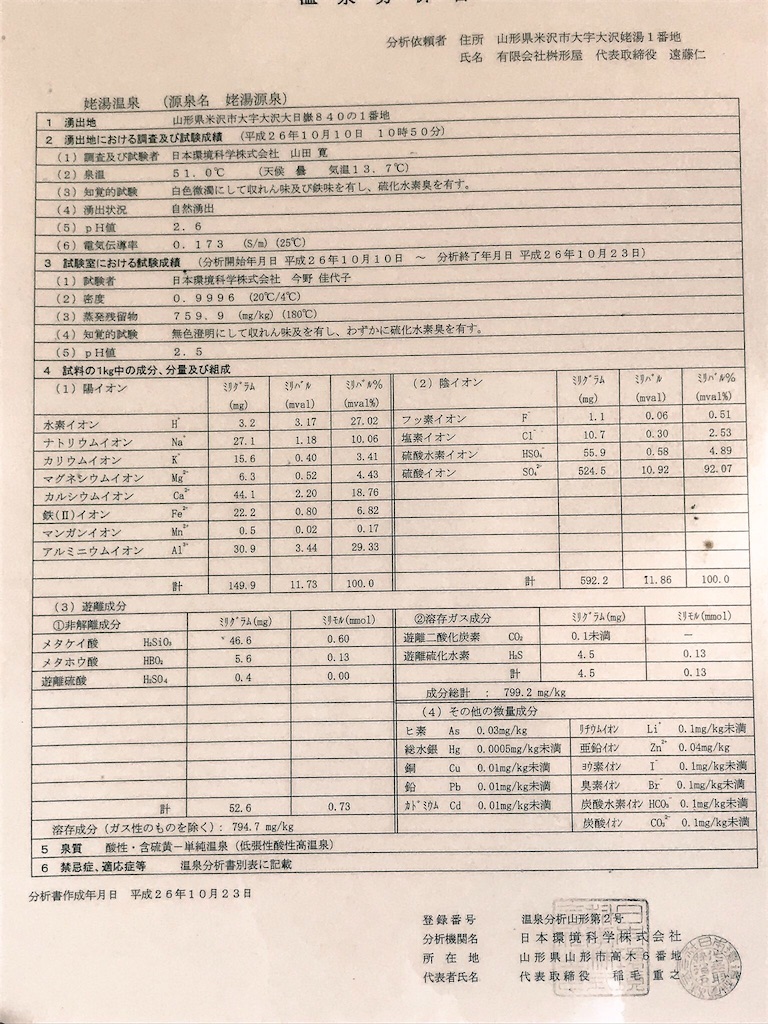 温泉分析書
分析依頼者 住所 山形県米沢市大字大沢姥湯1番地
氏名 有限会社桝形屋 代表取締役 遠藤仁
姥湯温泉 (源泉名 姥湯源泉)
1 湧出地 山形県米沢市大字大沢大日嶽840の1番地
2 湧出地における調査及び試験成績 (平成26年10月10日 10時50分)
(1) 調査及び試験者 日本環境科学株式会社 山田 寛
(2) 泉温 51.0℃ (天候 曇 気温13.7℃)
(3) 知覚的試験 白色微濁にして収れん味及び鉄味を有し、硫化水素臭を有す。
(4) 湧出状況 自然湧出
(5) pH値 2.6
(6) 電気伝導率 0.173 (S/m) (25℃)
3 試験室における試験成績 (分析開始年月日 平成26年10月10日 ~ 分析終了年月日 平成26年10月23日)
(1) 試験者 日本環境科学株式会社 今野 佳代子
(2) 密度 0.9996 (20℃/4℃)
(3) 蒸発残留物 759.9 (mg/kg) (180℃)
(4) 知覚的試験 無色澄明にして収れん味及を有し、わずかに硫化水素臭を有す。
(5) pH値 2.5
4 試料の1kg中の成分、分量及び組成
(1) 陽イオン ミリグラム (mg) ミリバル (mval) ミリバル% (mval%)
水素イオン H⁺ 3.2 3.17 27.02
ナトリウムイオン Na⁺ 27.1 1.18 10.06
カリウムイオン K⁺ 15.6 0.40 3.41
マグネシウムイオン Mg²⁺ 6.3 0.52 4.43
カルシウムイオン Ca²⁺ 44.1 2.20 18.76
鉄(Ⅱ)イオン Fe²⁺ 22.2 0.80 6.82
マンガンイオン Mn²⁺ 0.5 0.02 0.17
アルミニウムイオン Al³⁺ 30.9 3.44 29.33
計 149.9 11.73 100.0
(2) 陰イオン ミリグラム (mg) ミリバル (mval) ミリバル% (mval%)
フッ素イオン F⁻ 1.1 0.06 0.51
塩素イオン Cl⁻ 10.7 0.30 2.53
硫酸水素イオン HSO₄⁻ 55.9 0.58 4.89
硫酸イオン SO₄²⁻ 524.5 10.92 92.07
計 592.2 11.86 100.0
(3) 遊離成分
①非解離成分 ミリグラム(mg) ミリモル(mmol)
メタケイ酸 H₂SiO₃ 46.6 0.60
メタホウ酸 HBO₂ 5.6 0.13
遊離硫酸 H₂SO₄ 0.4 0.00
計 52.6 0.73
溶存成分(ガス性のものを除く): 794.7 mg/kg
②溶存ガス成分 ミリグラム(mg) ミリモル(mmol)
遊離二酸化炭素 CO₂ 0.1未満 —
遊離硫化水素 H₂S 4.5 0.13
計 4.5 0.13
成分総計 : 799.2 mg/kg
(4) その他の微量成分
ヒ素 As 0.03mg/kg リチウムイオン Li⁺ 0.1mg/kg未満
総水銀 Hg 0.0005mg/kg未満 亜鉛イオン Zn²⁺ 0.04mg/kg
銅 Cu 0.01mg/kg未満 ヨウ素イオン I⁻ 0.1mg/kg未満
鉛 Pb 0.01mg/kg未満 臭素イオン Br⁻ 0.1mg/kg未満
カドミウム Cd 0.01mg/kg未満 炭酸水素イオン HCO₃⁻ 0.1mg/kg未満
炭酸イオン CO₃²⁻ 0.1mg/kg未満
5 泉質 酸性・含硫黄-単純温泉(低張性酸性高温泉)
6 禁忌症、適応症等 温泉分析書別表に記載
分析書作成年月日 平成26年10月23日
登録番号 温泉分析山形第2号
分析機関名 日本環境科学株式会社
所在地 山形県山形市高木6番地
代表者氏名 代表取締役 稲毛 重之